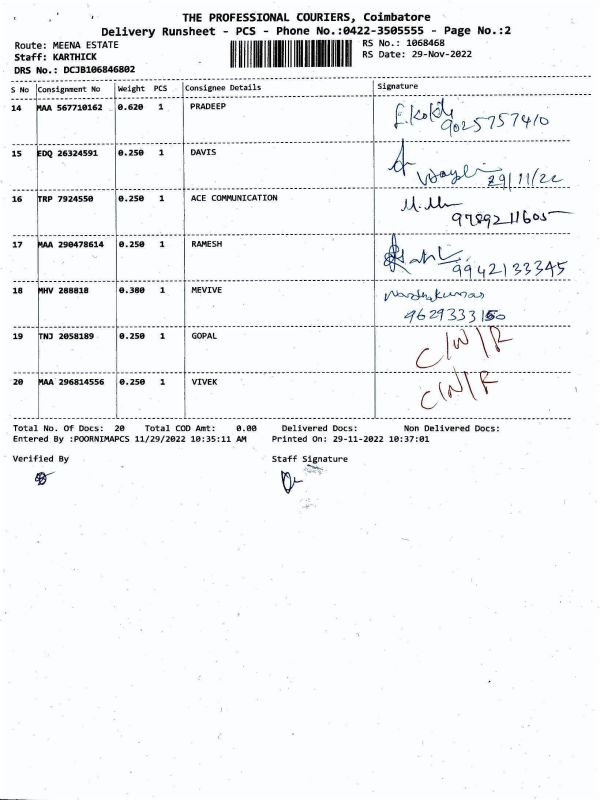 THE PROFESSIONAL COURIERS, Coimbatore
Delivery Runsheet - PCS - Phone No.:0422-3505555 - Page No.:2
Route: MEENA ESTATE RS No.: 1068468
Staff: KARTHICK RS Date: 29-Nov-2022
DRS No.: DCJB106846802
S No Consignment No Weight PCS Consignee Details Signature
14 MAA 567710162 0.620 1 PRADEEP
9025757410
15 EDQ 26324591 0.250 1 DAVIS
29/11/22
16 TRP 7924550 0.250 1 ACE COMMUNICATION
9789211605
17 MAA 290478614 0.250 1 RAMESH
9942133345
18 MHV 288818 0.380 1 MEVIVE
9629333150
19 TNJ 2058189 0.250 1 GOPAL C/N/R
20 MAA 296814556 0.250 1 VIVEK C/N/R
Total No. Of Docs: 20 Total COD Amt: 0.00 Delivered Docs: Non Delivered Docs:
Entered By :POORNIMAPCS 11/29/2022 10:35:11 AM Printed On: 29-11-2022 10:37:01
Verified By Staff Signature